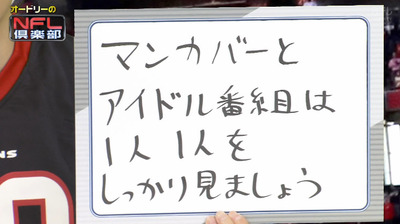 オードリーの
NFL
倶楽部
マンカバーと
アイドル番組は
1人1人を
しっかり見ましょう
NS